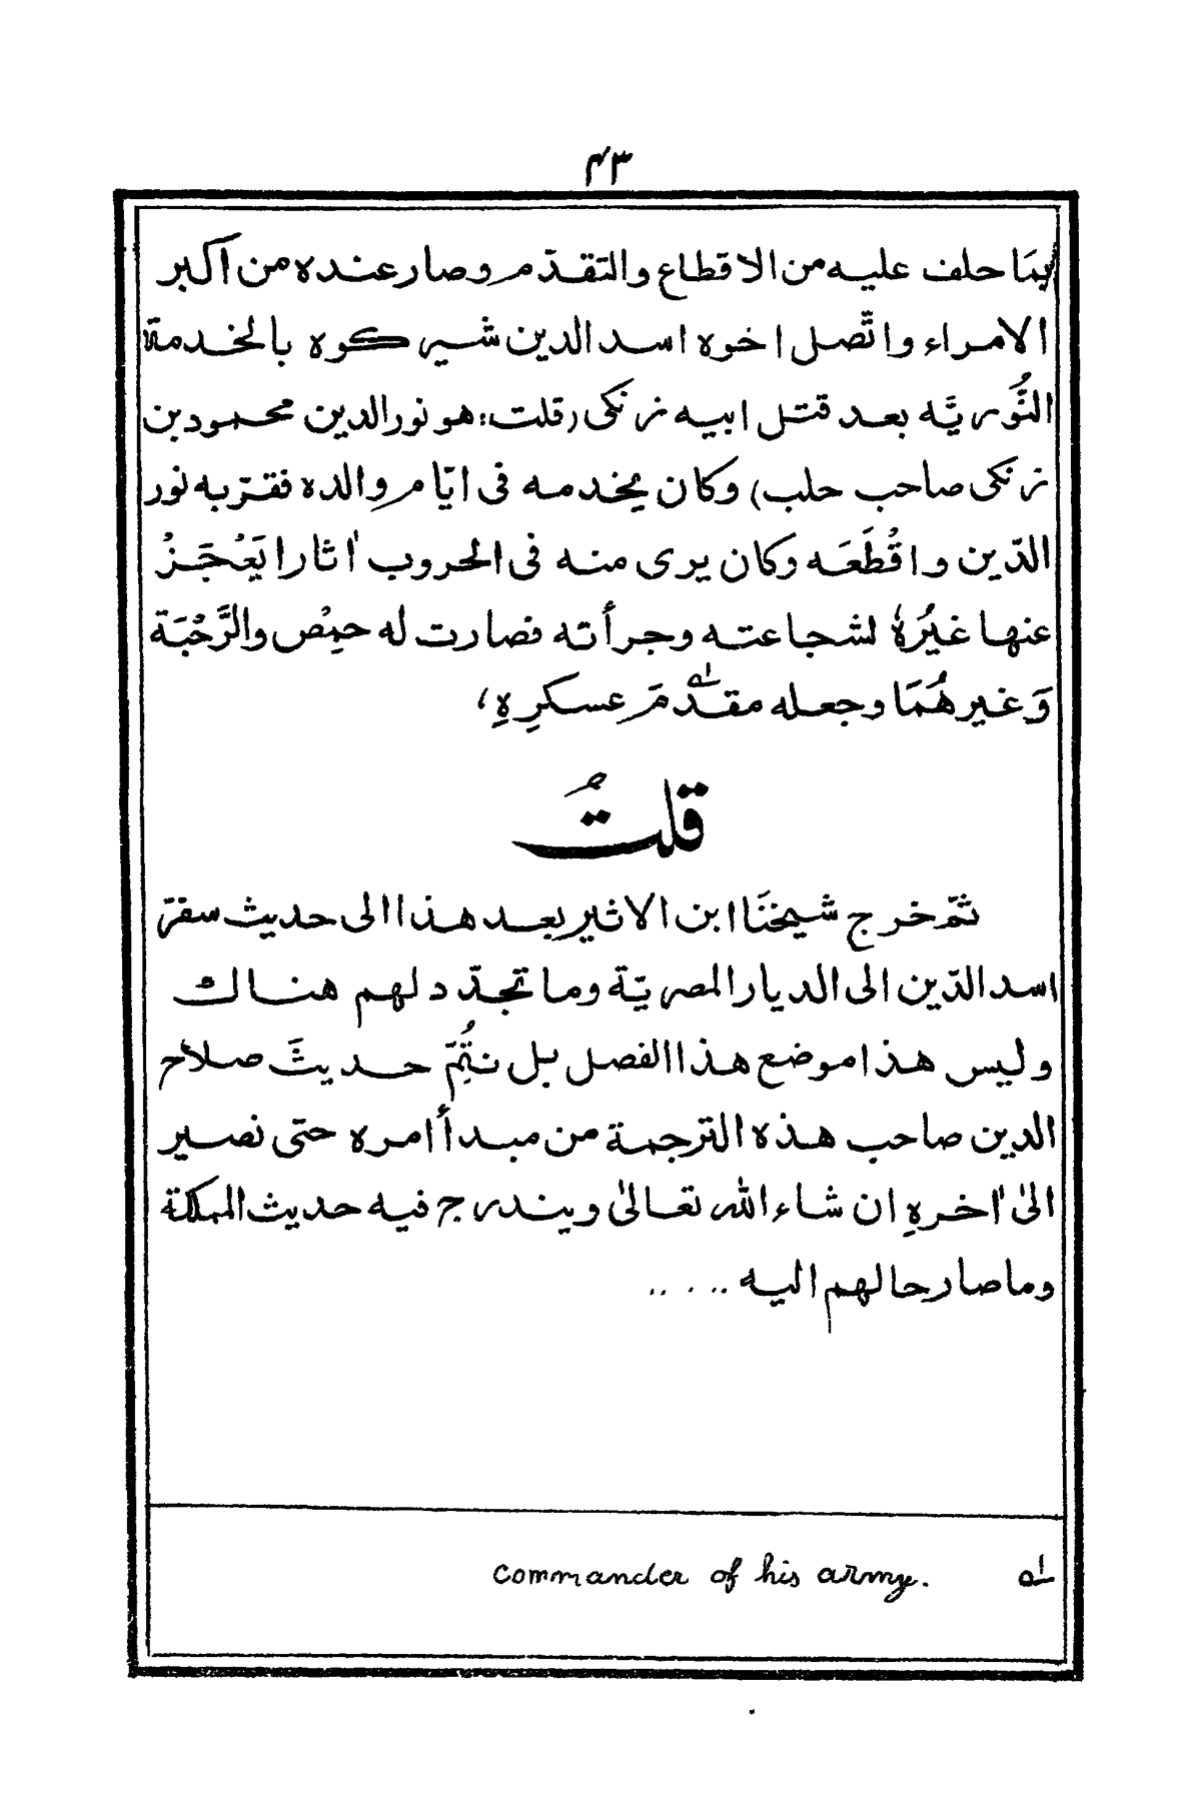 ۴۳
بِمَا حلف عليه من الاقطاع والتقدّم وصار عنده من اكبر
الامراء واتّصل اخوه اسد الدين شيركوه بالخدمة
النُّوريَّه بعد قتل ابيه زنكى (قلت: هو نور الدين محمود بن
زنكى صاحب حلب) وكان يخدمه فى ايّام والده فقرّبه نور
الدّين واقْطَعَه وكان يرى منه فى الحروب اٰثارا يَعْجَزُ
عنها غيرُهٗ لشجاعته وجرأته فصارت له حِمْص والرَّحْبَة
وَغيرهُمَا وجعله مقدّمَ عسكرِهِ؛
قلتُ
ثمّ خرج شيخنَا ابن الاثير بعد هذا الى حديث سفر
اسد الدّين الى الديار المصريّة وما تجدّد لهم هناك
وليس هذا موضع هذا الفصل بل نتُمِّ حديثَ صلاح
الدين صاحب هذه الترجمة من مبدأ امره حتى نصير
الىٰ اٰخرهِ ان شاء الله تعالىٰ ويندرج فيه حديث المملكة
وما صار حالهم اليه . . . . .
لہ commander of his army.